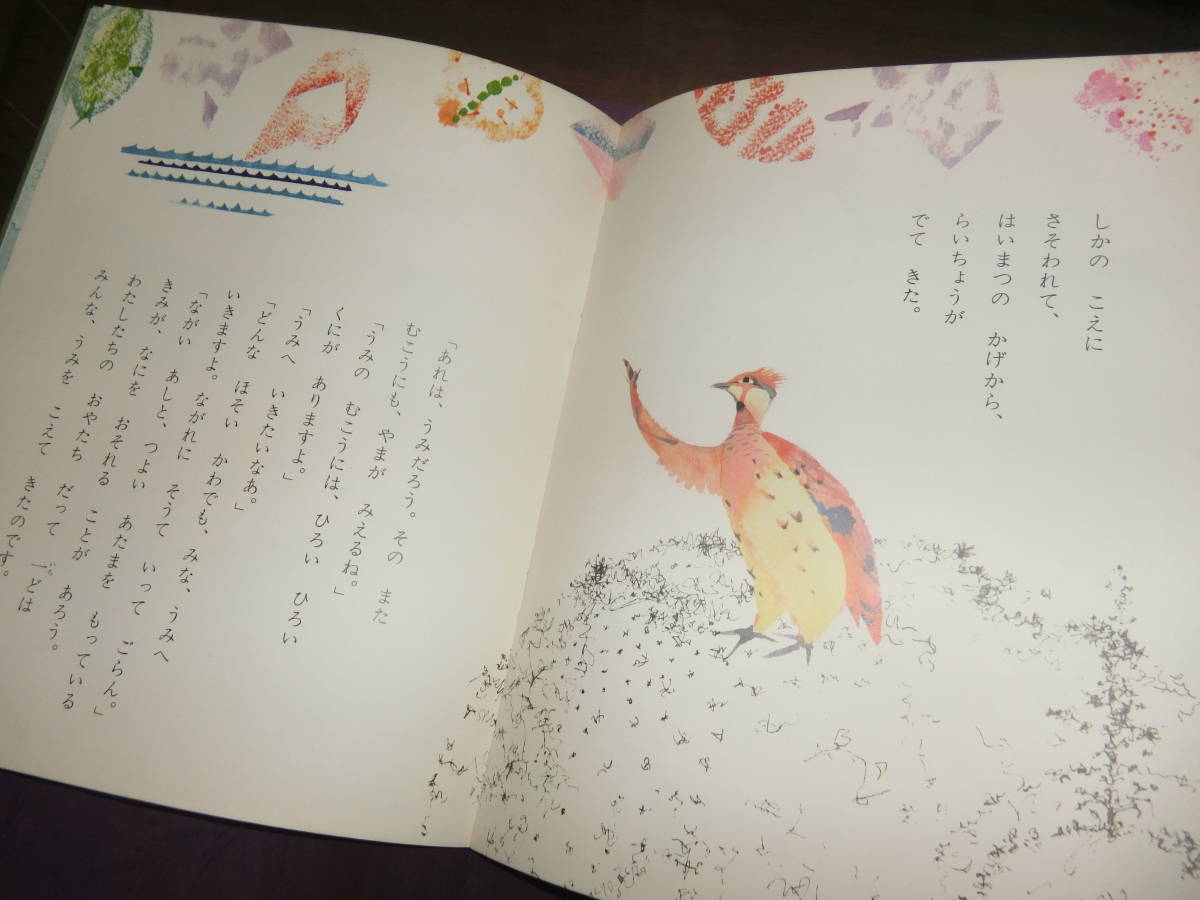 しかの こえに
さそわれて、
はいまつの かげから、
らいちょうが
でて きた。
「あれは、うみだろう。その また
むこうにも、やまが みえるね。」
「うみの むこうには、ひろい ひろい
くにが ありますよ。」
「うみへ いきたいなあ。」
「どんな ほそい かわでも、みな、うみへ
いきますよ。ながれに そうて いって ごらん。」
「ながい あしと、つよい あたまを もっている
きみが、なにを おそれる ことが あろう。
わたしたちの おやたち だって 一どは
みんな、うみを こえて きたのです。